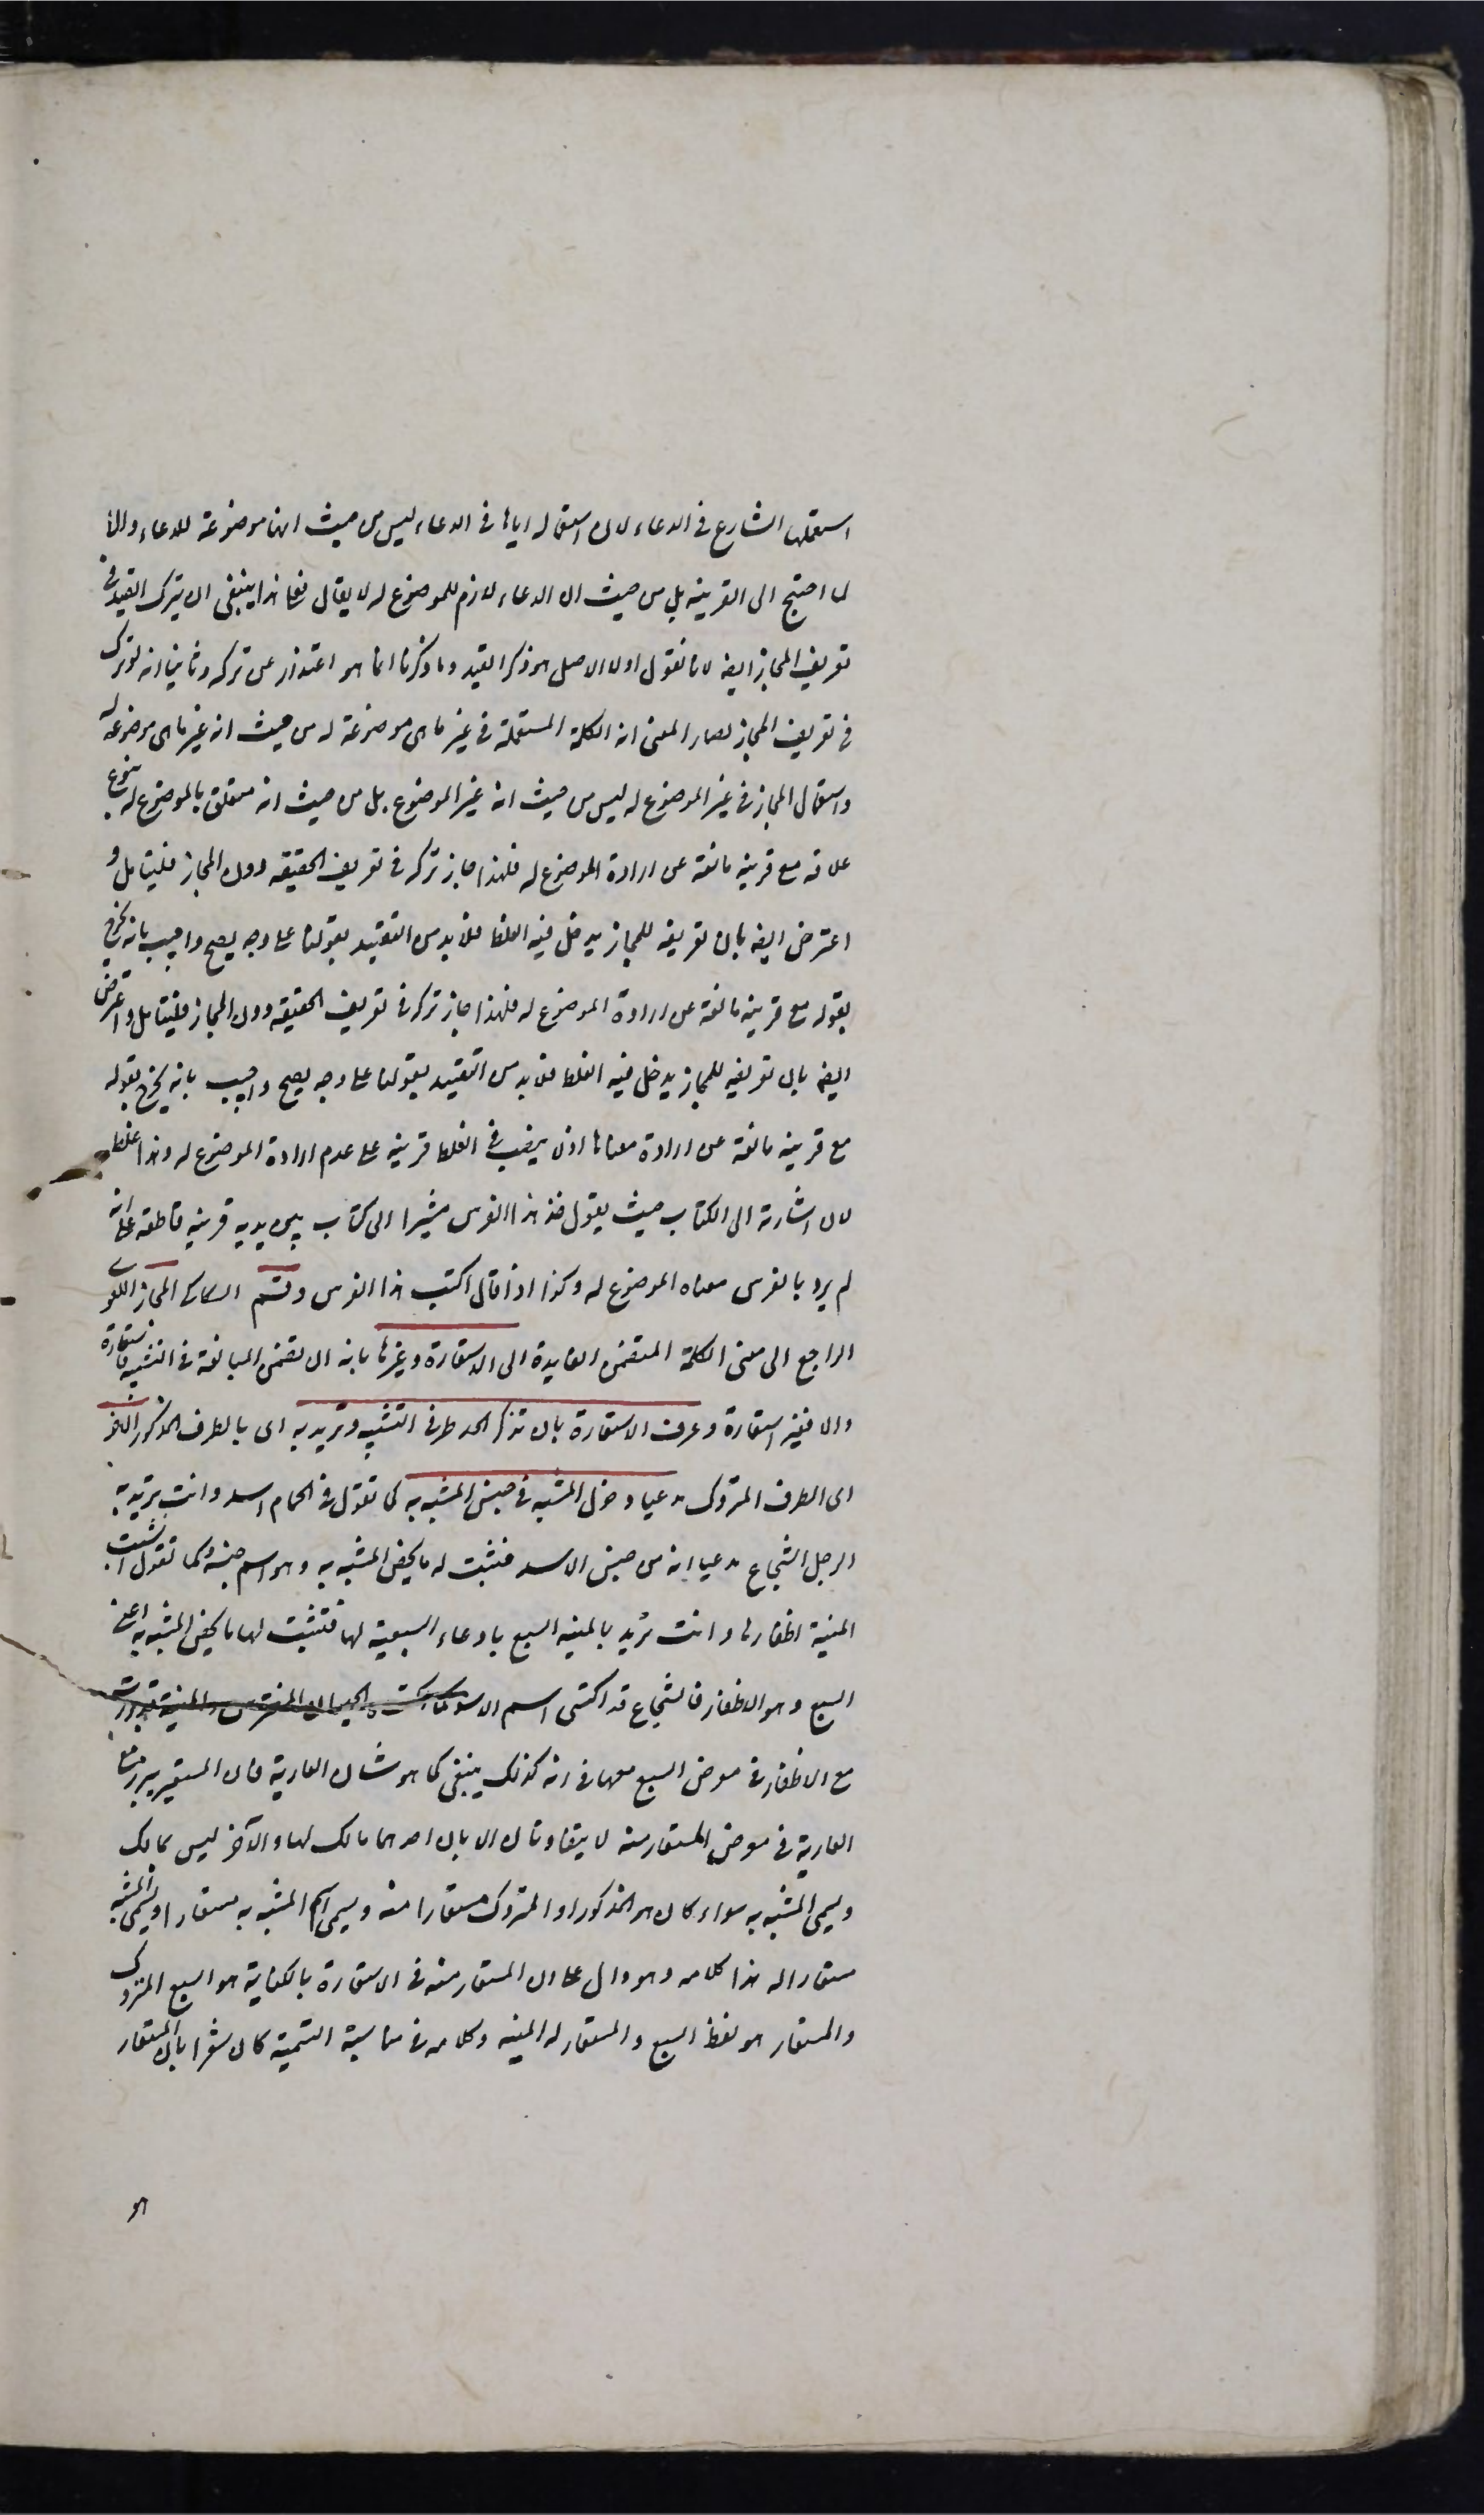 استعملها الشارع فى الدعاء لان استعماله اياها فى الدعاء ليس من حيث انها موضوعة للدعاء والا
لما احتيج الى القرينة بل من حيث ان الدعاء لازم للموضوع له لا يقال فعلى هذا ينبغى ان يترك القيد فى
تعريف المجاز ايضا لانا نقول اولا الاصل هو ذكر القيد وما ذكرنا انما هو اعتذار عن تركه وثانيا انه لو ترك
فى تعريف المجاز لصار المعنى انه الكلمة المستعملة فى غير ما هى موضوعة له من حيث انه غير ما هى موضوعة له
واستعمال المجاز فى غير الموضوع له ليس من حيث انه غير الموضوع بل من حيث انه متعلق بالموضوع له بنوع
علاقه مع قرينة مانعة عن ارادة الموضوع له فلهذا جاز تركه فى تعريف الحقيقه دون المجاز فليتامل و
اعترض ايضا بان تعريفه للمجاز يدخل فيه الغلط فلابد من التقييد بقولنا على وجه يصح واجيب بانه يخرج
بقوله مع قرينة مانعة عن ارادة الموضوع له فلهذا جاز تركه فى تعريف الحقيقه دون المجاز فليتامل واعترض
ايضا بان تعريفه للمجاز يدخل فيه الغلط فلابد من التقييد بقولنا على وجه يصح واجيب بانه يخرج بقوله
مع قرينة مانعة عن ارادة معناها اذ لا ينصب فى الغلط قرينة على عدم ارادة الموضوع له وهذا غلط
لان اشارته الى الكتاب حيث يقول خذ هذا الفرس مشيرا الى كتاب بين يديه قرينة قاطعة على انه
لم يرد بالفرس معناه الموضوع له وكذا اذا قال اكتب هذا الفرس وقسم السكاكى المجاز اللغوى
الراجع الى معنى الكلمة المتضمن الفايدة الى الاستعارة وغيرها بانه ان تضمن المبالغة فى التشبيه فاستعارة
والا فغير استعارة وعرف الاستعارة بان تذكر احد طرفى التشبيه وتريد به اى بالطرف المذكور الاخر
اى الطرف المتروك مدعيا دخول المشبه فى جنس المشبه به كما تقول فى الحمام اسد وانت تريد به
الرجل الشجاع مدعيا انه من جنس الاسد فتثبت له ما يخص المشبه به وهو اسم جنسه وكما تقول انشبت
المنية اظفارها وانت تريد بالمنية السبع بادعاء السبعية لها فتثبت لها ما يخص المشبه به اعنى
السبع وهو الاظفار فالشجاع قد اكتسى اسم الاسد كما اكتسته الحيوان المفترس والمنية قد برزت
مع الاظفار فى معرض السبع معها فى انه كذلك ينبغى كما هو شان العارية فان المستعير يبرز مع
العارية فى معرض المستعار منه لا يتفاوتان الا بان احدهما مالك لها والآخر ليس بمالك
ويسمى المشبه به سواء كان هو المذكور او المتروك مستعارا منه ويسمى اسم المشبه به مستعارا ويسمى المشبه
مستعارا له هذا كلامه وهو دال على ان المستعار منه فى الاستعارة بالكناية هو السبع المتروك
والمستعار هو لفظ السبع والمستعار له المنية وكلامه فى مناسبة التسمية كان مشعرا بان المستعار
هو